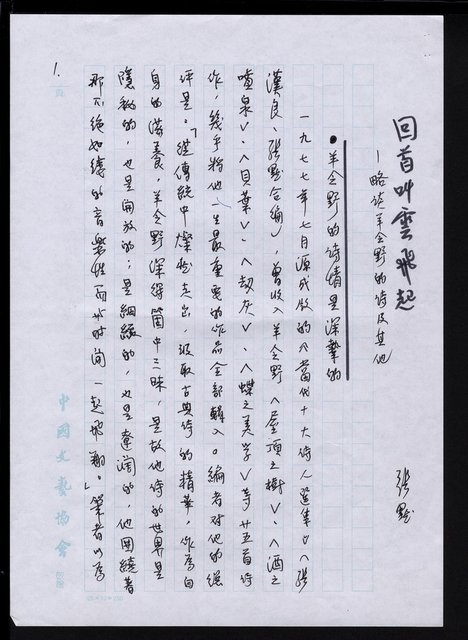 1.
回首叫雲飛起
—略談羊令野的詩及其他
張默
●羊令野的詩情是深摯的
一九七七年七月源成版的《當代十大詩人選集》(張
漢良、張默合編),曾收入羊令野〈屋頂之樹〉、〈酒之
噴泉〉、〈貝葉〉、〈劫灰〉、〈蝶之美學〉等廿五首詩
作,幾乎將他一生最重要的作品全部輯入。編者對他的總
評是:「從傳統中燦然走出,汲取古典詩的精華,作為自
身的滋養,羊令野深得箇中三昧,是故他詩的世界是
隱秘的,也是開放的;是綢繆的,也是遼闊的,他圍繞著
那不絕如縷的音樂性而與時間一起飛翔。」筆者以為
中國文藝協會